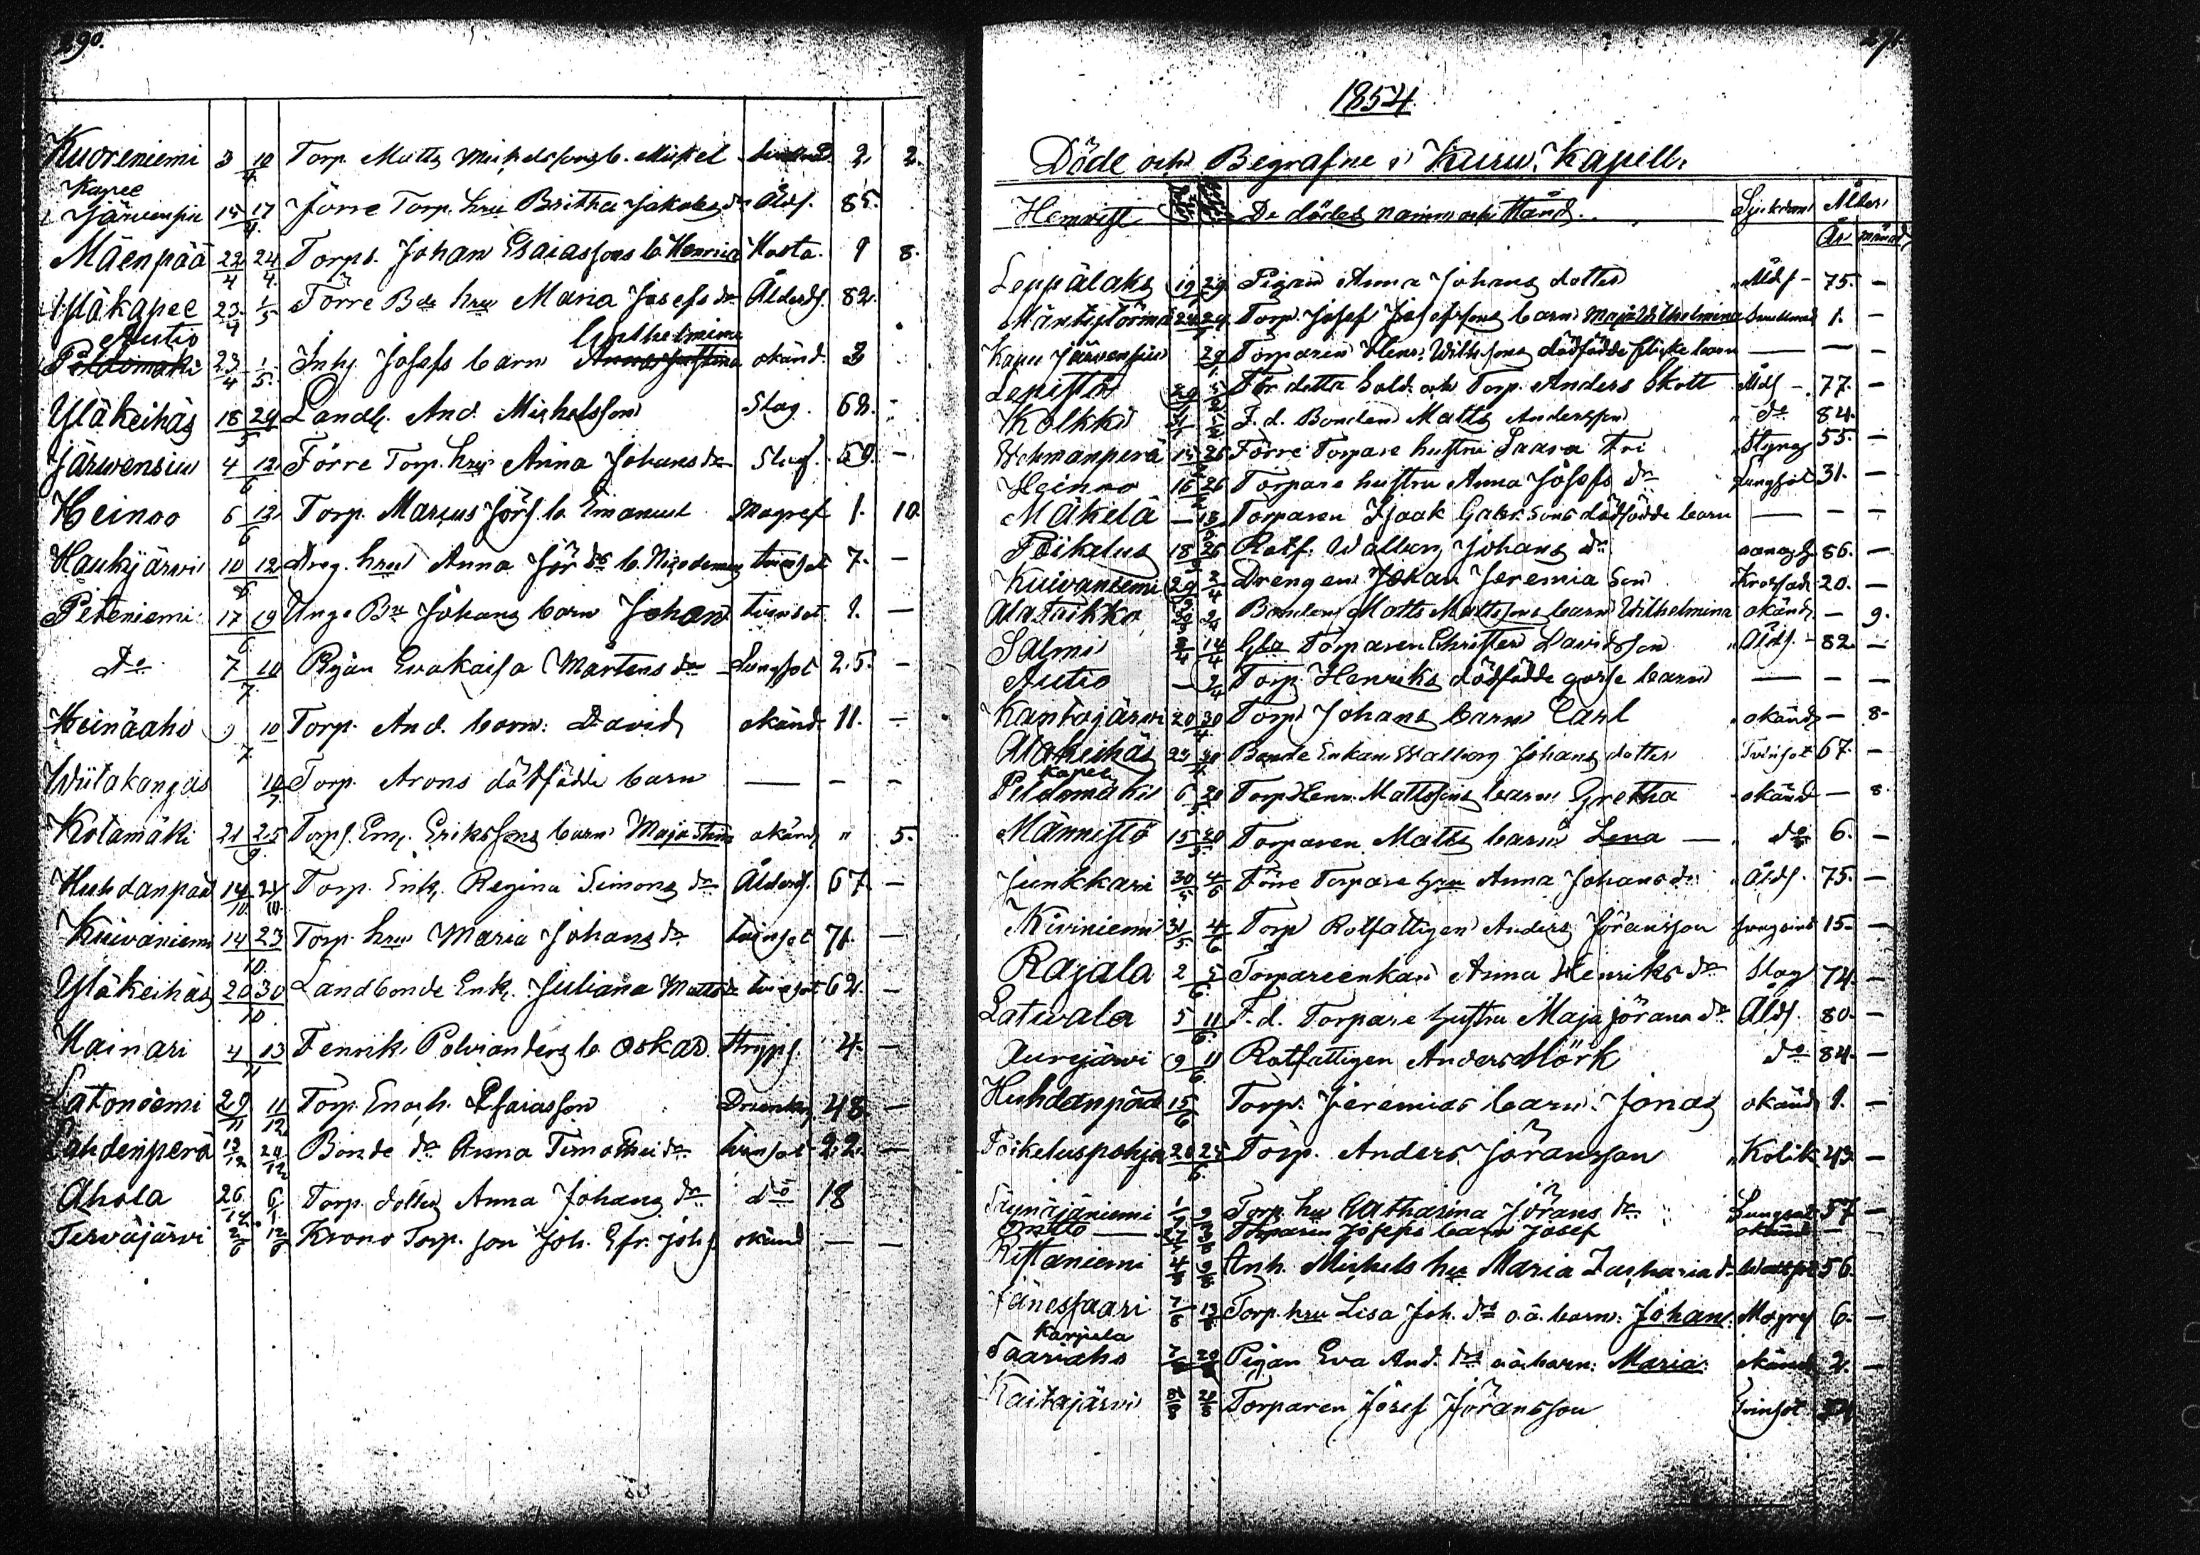 290.
Kuoreniemi 3 10/4 Torp. Matts Michelssons b. Mikel 2. 2.
Kapee
Järvensiu 15 17/4 Förre Torp. hru Britha Jakobs dr Åldf. 85.
Mäenpää 22/4 24/4 Torps. Johan Esaiassons b. Henrica Hosta. 1 8.
Yläkapee 23/4 1/5 Förre Bde hru Maria Josefs dr Ålderdf. 82.
Autio Wilhelmina
Peldomäki 23/4 1/5 Inhs Josefs barn okänd. 3
Yläkeihäs 18 24/5 Landb. And. Michelsson Slag. 68. -
Järwensiu 4 12/6 Förre Torp. hru Anna Johans dr Slag. 59. -
Heinoo 6 12/6 Torp. Marcus Jörs. b. Emanuel Magref 1. 10.
Haukijärvi 10 12/6 Dreg. hru Anna Jör dr b. Nicodemus tvinsot 7. -
Peteniemi 17 19/6 Unge Bde Johans barn Johan tvinsot. 1. -
do 7 10/7 Pigan Evakaisa Mårtens dr Lungsot 25. -
Heinäaho 9 10/7 Torp. And. barn: David okänd. 11. -
Wiitakangas 10/7 Torp. Arons dödfödde barn — - -
Kotamäki 21 25/9 Torps. Em. Erikssons barn Maja Stina okänd " 5.
Huhdanpää 14/10 24/10 Torp. Enk. Regina Simons dr Ålderdf. 67. -
Kuivaniemi 14 23/10 Torp. hru Maria Johans dr tvinsot 71. -
Yläkeihäs 20 30/10 Landbonde Enk. Juliana Matts dr tvinsot 62. -
Mainari 4 13/11 Fenrik Polvianders b. Oskar. Stryps. 4. -
Latoniemi 29/11 11/12 Torp. Enoch Esaiasson 48 -
Lahdenperä 13/12 24/12 Bonde dr Anna Timothei dr tvinsot 22. -
Ahola 26/12 6/1 Torp. dotter Anna Johans dr do 18
Tervajärvi 2/6 12/6 Krono Torp. son Joh. Efr. Johs okänd - -
291.
1854.
Döde och Begrafne i Kuru Kapell.
Hemvist De dödes namn och stånd. Sjukdom Ålder
År månad
Leppälaks 19 29 Pigan Anna Johans dotter Åldf - 75. -
Mäntistörmä 24 29 Torp. Josef Josefssons barn Maja Wilhelmina 1. -
Kapee Järvensiu 29 Torparen Henr. Wilhssons dödfödde flicke barn — - -
Lepistö 29 5/2 För detta Sold. och Torp. Anders Skott Åldf -. 77. -
Kolkki 31/1 5/2 F. d. Bonden Matts Andersson do 84.
Wehmanperä 15 26 Förre Torpare hustru Saara Styng 55. -
Heinoo 16 26 Torpare hustru Anna Josefs dr Lungsot 31. -
Mäkelä - 18 Torparen Isaak Gabr. Sons dödfödde barn — - -
Poikelus 18 26 Rotf. Walborg Johans dr 86. -
Kuivaniemi 29 2/4 Drengen Johan Jeremia Son 20. -
Alatrikko 29 2/4 Bonden Matts Mattssons barn Wilhelmina okänd - 9.
Salmi 3/4 14/4 Gla Torparen Christer Davidsson Åldf. - 82 -
Autio - 2/4 Torp. Henriks dödfödde gosse barn — - -
Kantojärvi 20 30/4 Torp. Johans barn Carl okänd - 8.
Alakeihäs 23 30/4 Bonde Enkan Walborg Johans dotter Tvinsot 67. -
Kapee
Peldomäki 6 20/5 Torp Henr. Mattssons barn Gretha okänd - 8.
Männistö 15 20/5 Torparen Matts barn Lena - do 6. -
Junkkari 30/5 4/6 Förre Torpare hru Anna Johans dr Åldf. 75. -
Kiviniemi 31/5 4/6 Torp Rotfattigen Anders Jöransson 15. -
Rajala 2 5/6 Torpareenkan Anna Henriks dr Slag 74. -
Latwala 5 11/6 F. d. Torpare hustru Maja Jörans dr Åldf. 80. -
Aurejärvi 9 11/6 Rotfattigen Anders Mörk do 84. -
Huhdanpää 15/6 Torp. Jeremias barn: Jonas okänd 1. -
Poikeluspohja 20 25/6 Torp. Anders Jöransson Kolik 43 -
1/7 9 Torp. hru Catharina Jörans dr Lungsot 57 -
Torparen Josefs barn Josef okänd - -
Ristaniemi 4/8 9/8 Inh. Michels hru Maria Zacharia dr 56.
Jänessaari 7/8 13/8 Torp. hru Lisa Joh. dr o.ä. barn: Johan. Magref 6. -
Karjula
Saariaho 7/8 20/8 Pigan Eva And. drs o.ä. barn: Maria okänd 2. -
Kaitajärvi 20/8 Torparen Josef Jöransson Tvinsot